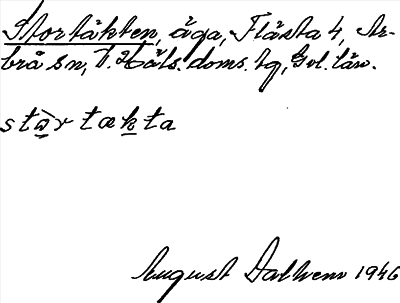 Stortäkten, äga, Flästa 4, Ar-
brå sn, V. Häls. doms. tg, Gvl. län.
stạ̊r tæk̲ta
August Dalhem 1946